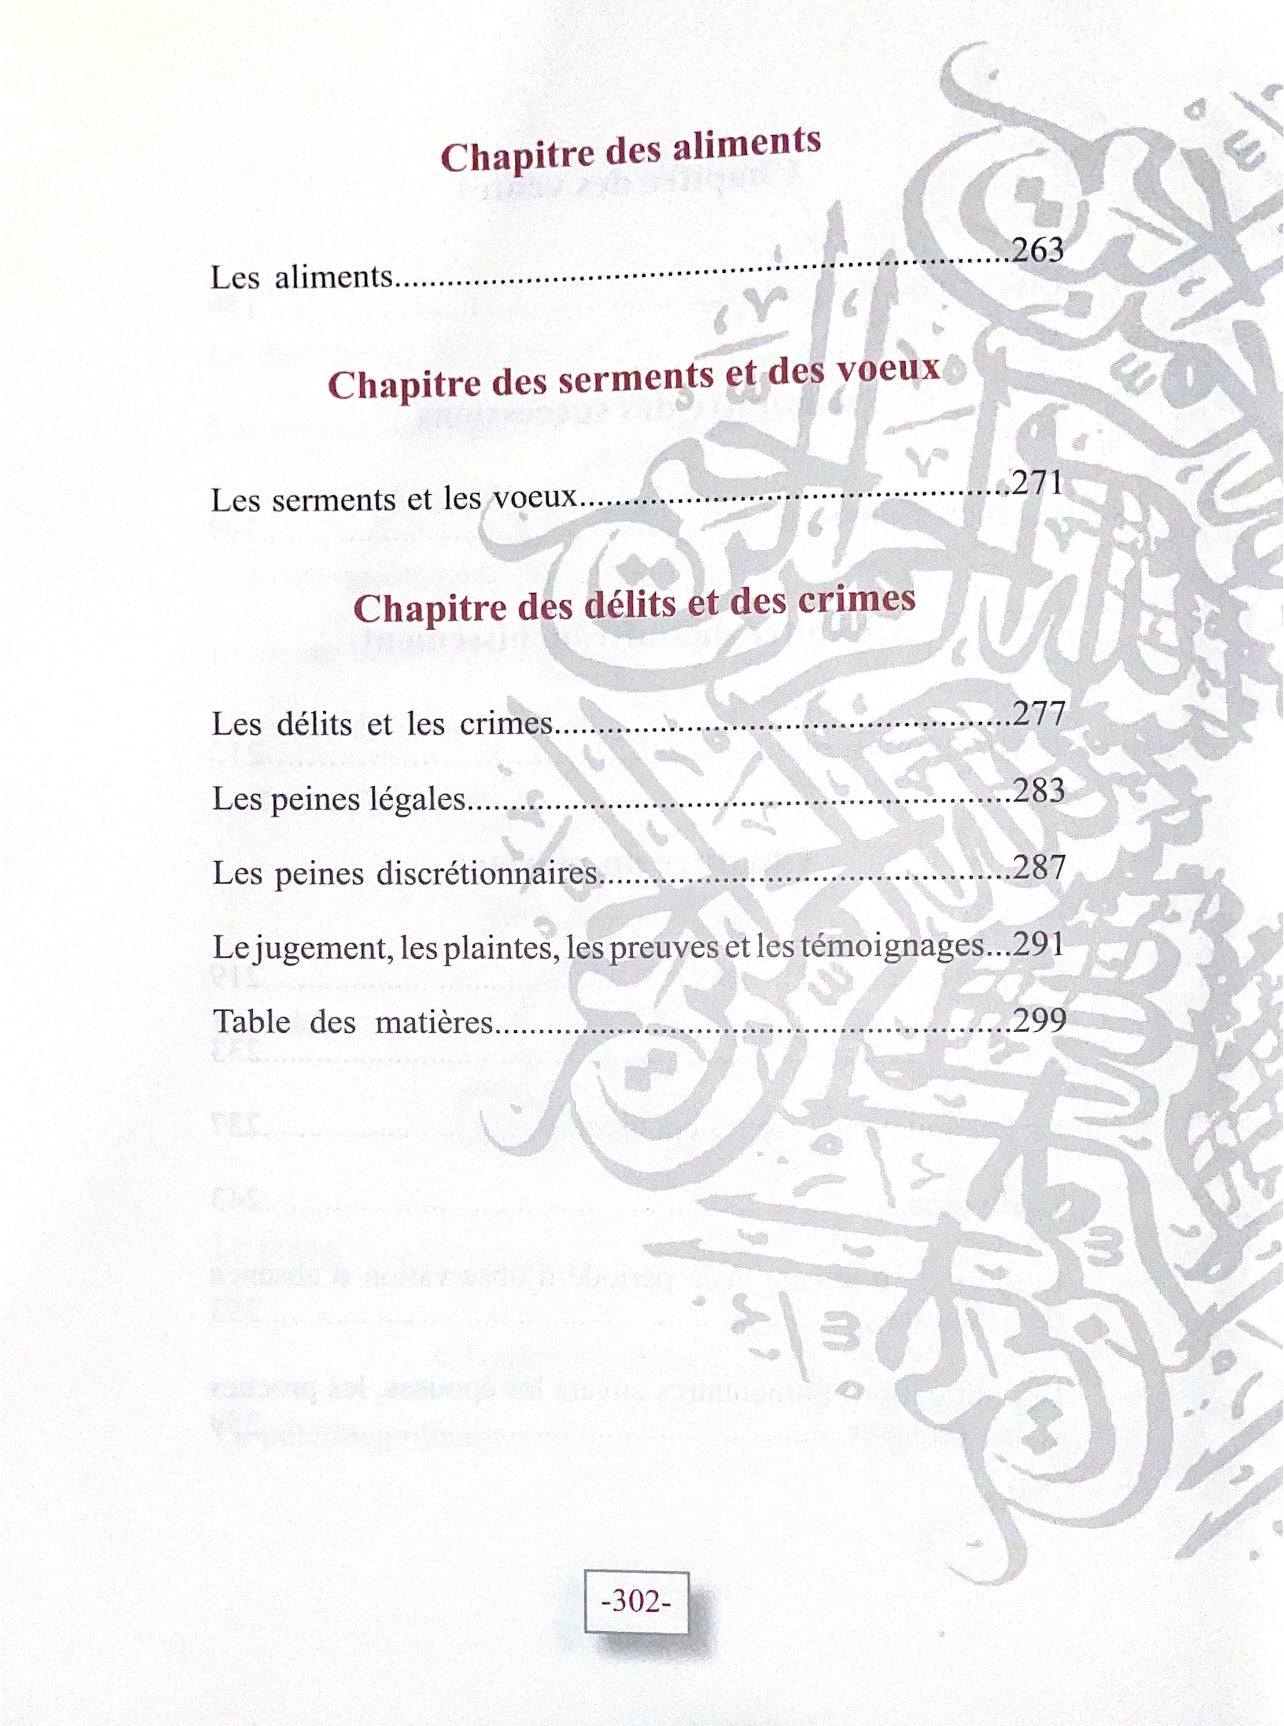 Chapitre des aliments
Les aliments......................................................................263
Chapitre des serments et des voeux
Les serments et les voeux.................................................271
Chapitre des délits et des crimes
Les délits et les crimes....................................................277
Les peines légales..............................................................283
Les peines discrétionnaires...............................................287
Le jugement, les plaintes, les preuves et les témoignages...291
Table des matières...........................................................299
-302-